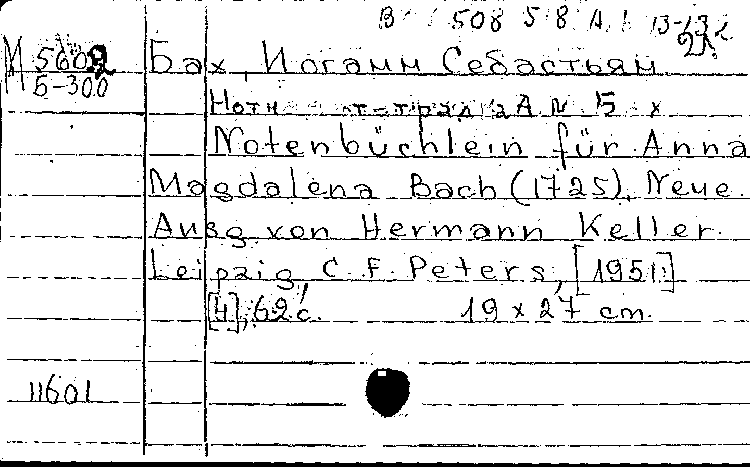 508 58 А.
М 5602 Бах, Иоганн Себастьян
Б-300
Нотн
Notenbüchlein für Anna
Magdalena Bach (1725). Neue
Ausg. von Hermann Keller.
Leipzig, C. F. Peters, [1951.]
[4], 62 с. 19 x 27 cm.
11601